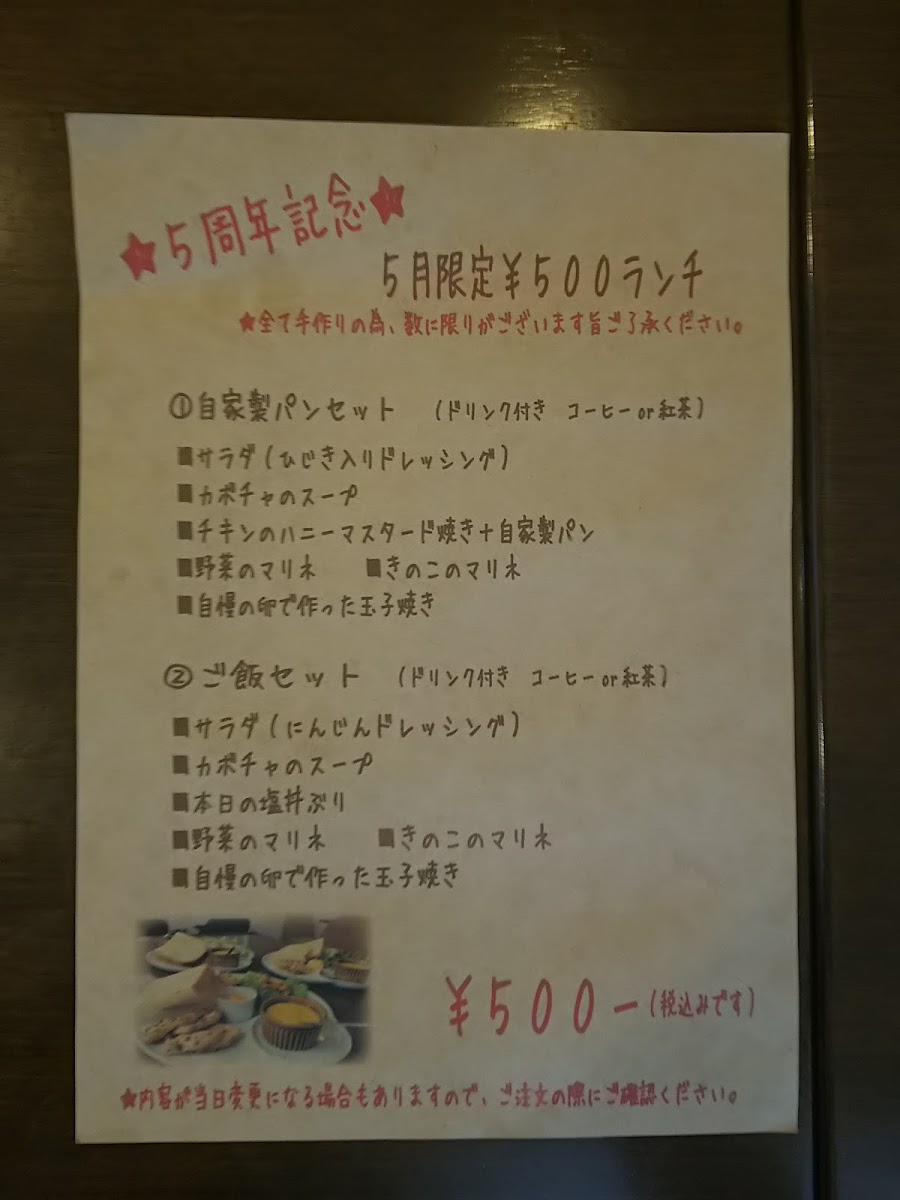 ★5周年記念★
5月限定￥500ランチ
★全て手作りの為、数に限りがございます旨ご了承ください。
①自家製パンセット （ドリンク付き コーヒーor紅茶）
■サラダ（ひじき入りドレッシング）
■カボチャのスープ
■チキンのハニーマスタード焼き＋自家製パン
■野菜のマリネ ■きのこのマリネ
■自慢の卵で作った玉子焼き
②ご飯セット （ドリンク付き コーヒーor紅茶）
■サラダ（にんじんドレッシング）
■カボチャのスープ
■本日の塩丼ぶり
■野菜のマリネ ■きのこのマリネ
■自慢の卵で作った玉子焼き
￥500ー（税込みです）
★内容が当日変更になる場合もありますので、ご注文の際にご確認ください。